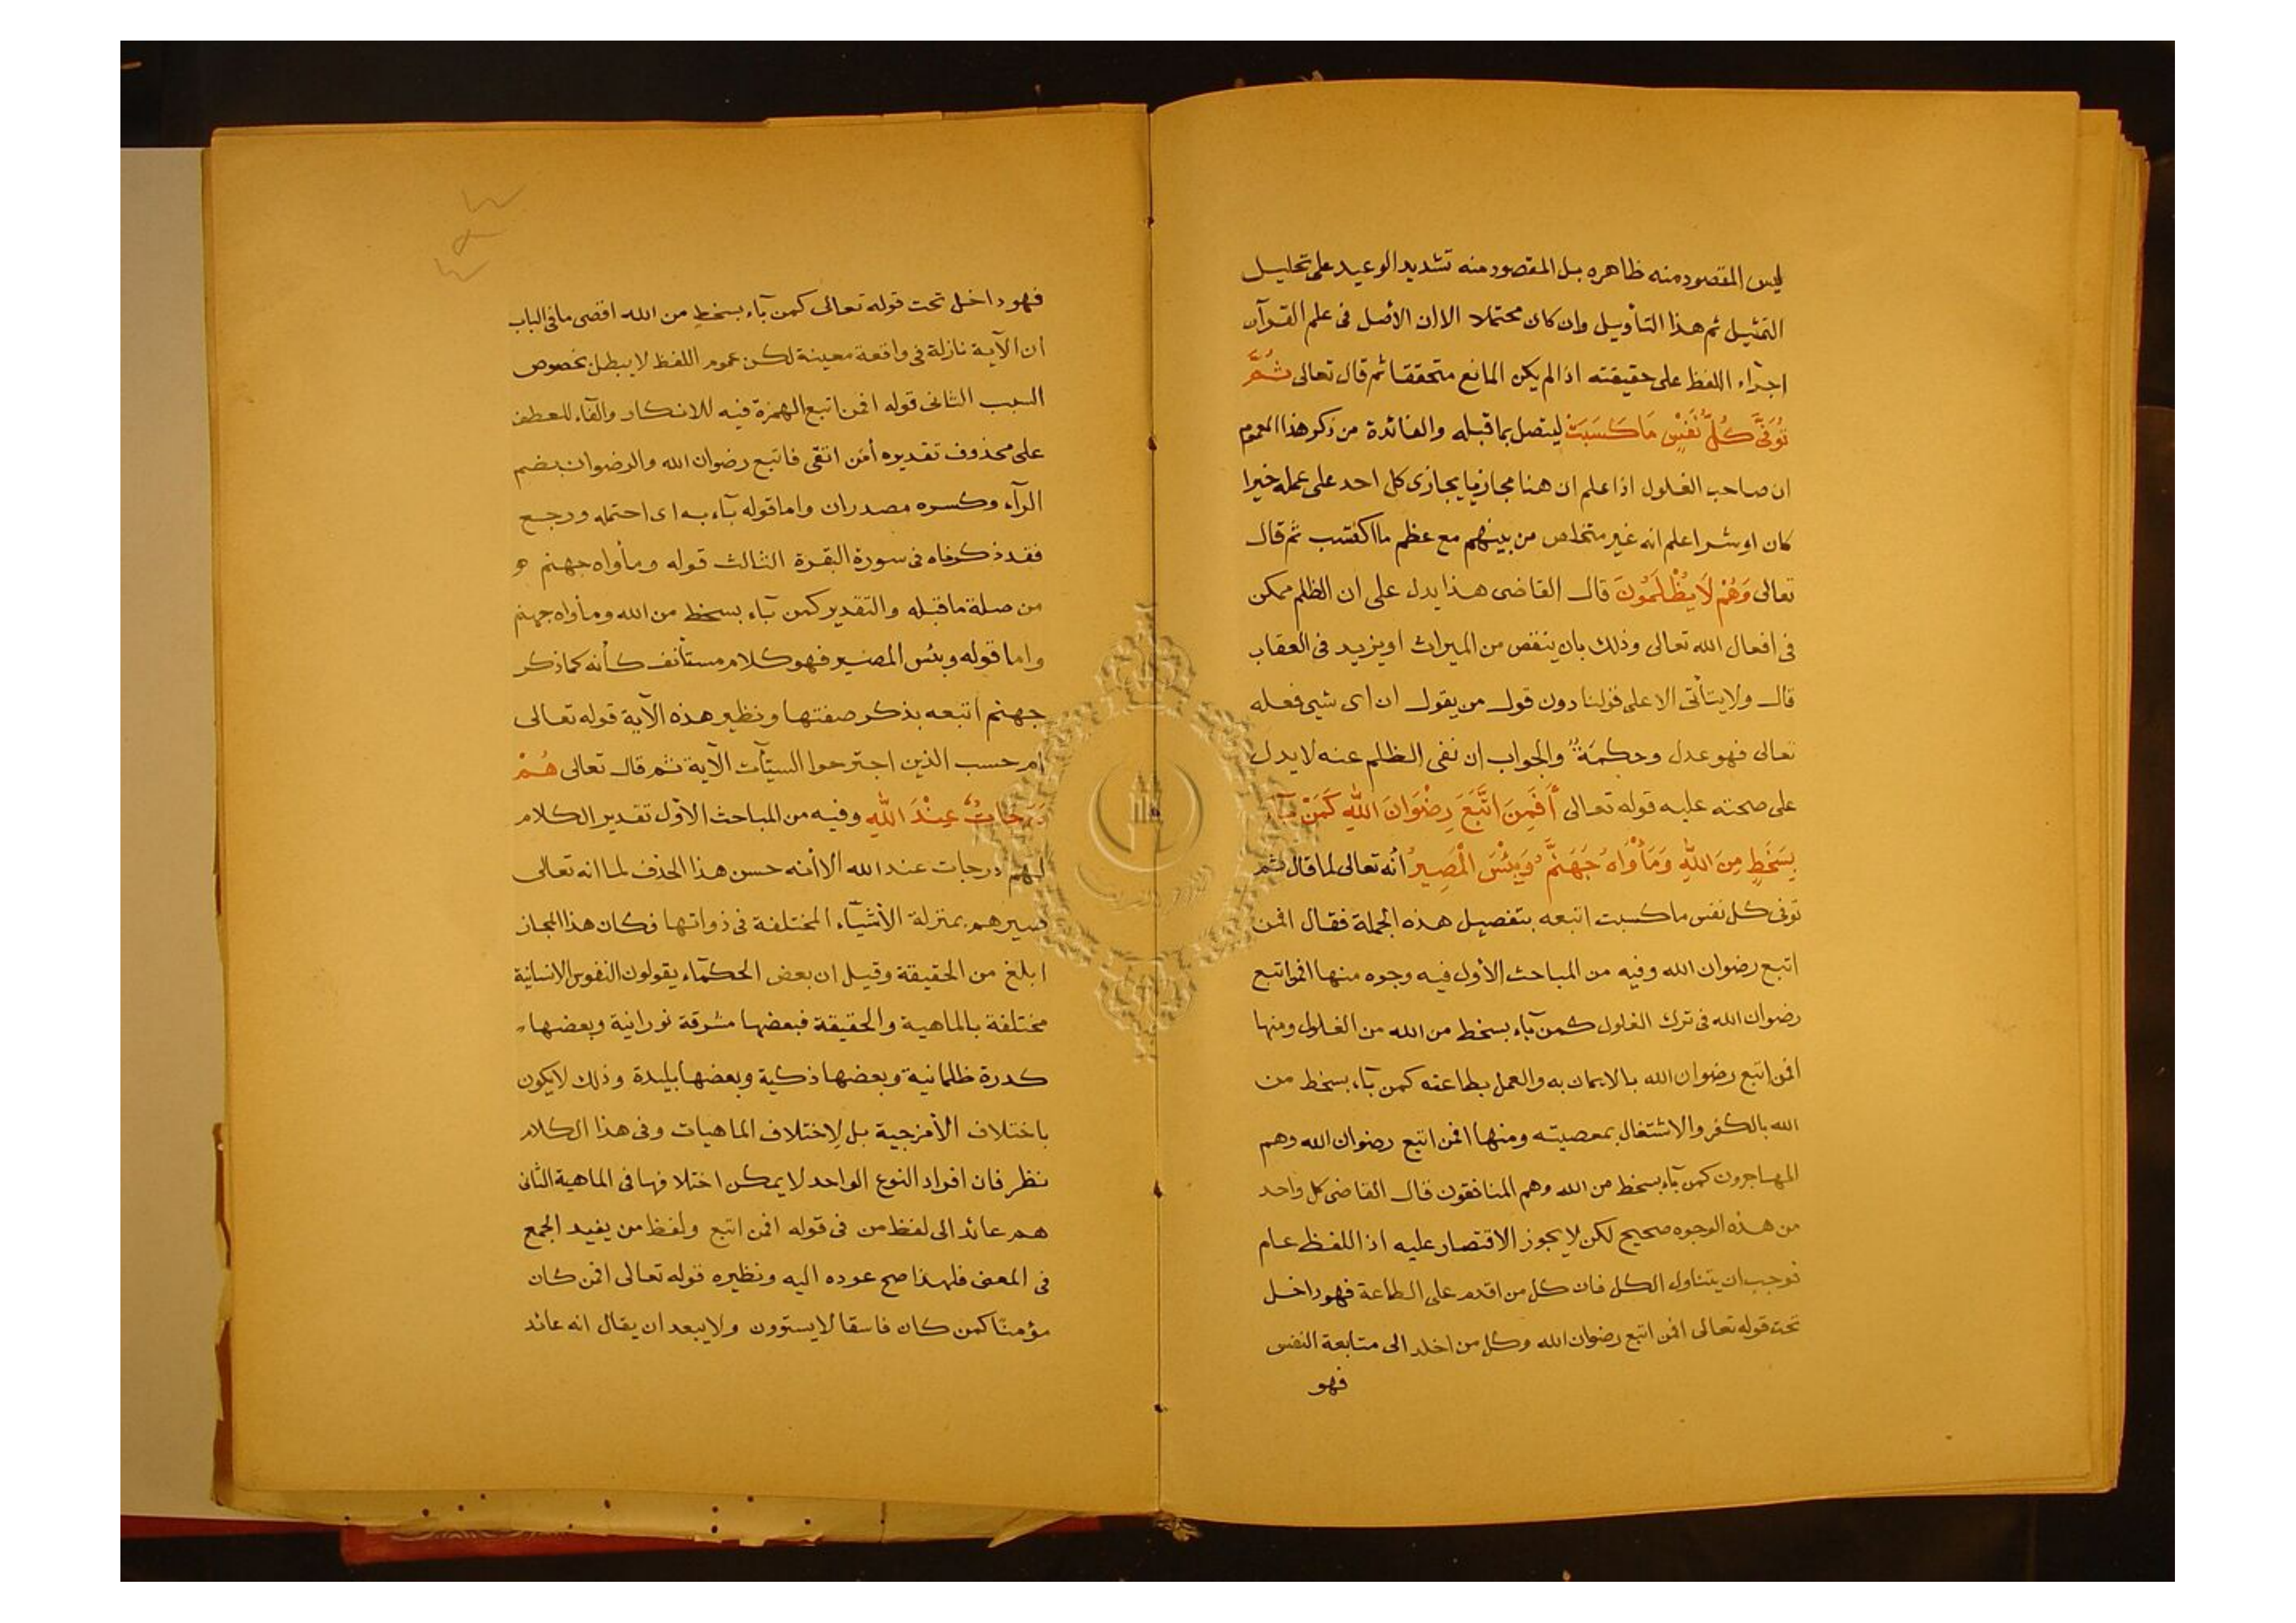 ليس المقصود منه ظاهره بل المقصود منه تشديد الوعيد على تحليل
التمثيل ثم هذا التأويل وان كان محتملا الا ان الأصل فى علم القرآن
اجرآء اللفظ على حقيقته اذا لم يكن المانع متحققا ثم قال تعالى ثُمَّ
تُوَفَّى كُلُّ نَفْسٍ مَا كَسَبَتْ ليتصل بما قبله والفائدة من ذكر هذا العموم
ان صاحب الغلول اذا علم ان هنا مجازيا يجازى كل احد على عمله خيرا
كان او شرا علم انه غير متخلص من بينهم مع عظم ما اكتسب ثم قال
تعالى وَهُمْ لَا يُظْلَمُونَ قال القاضى هذا يدل على ان الظلم ممكن
فى افعال الله تعالى وذلك بان ينقص من الميراث او يزيد فى العقاب
قال ولا يتأتى الا على قولنا دون قول من يقول ان اى شيئ فعله
تعالى فهو عدل وحكمة والجواب ان نفى الظلم عنه لا يدل
على صحته عليه قوله تعالى أَفَمَنِ اتَّبَعَ رِضْوَانَ اللّٰهِ كَمَنْ بَآءَ
بِسَخَطٍ مِنَ اللّٰهِ وَمَأْوَاهُ جَهَنَّمُ وَبِئْسَ الْمَصِيرُ أنه تعالى لما قال ثم
توفى كل نفس ما كسبت اتبعه بتفصيل هذه الجملة فقال افمن
اتبع رضوان الله وفيه من المباحث الأول فيه وجوه منها افمن اتبع
رضوان الله فى ترك الغلول كمن بآء بسخط من الله من الغلول ومنها
افمن اتبع رضوان الله بالايمان به والعمل بطاعته كمن بآء بسخط من
الله بالكفر والاشتغال بمعصيته ومنها افمن اتبع رضوان الله وهم
المهاجرون كمن بآء بسخط من الله وهم المنافقون قال القاضى كل واحد
من هذه الوجوه صحيح لكن لا يجوز الاقتصار عليه اذ اللفظ عام
فوجب ان يتناول الكل فان كل من اقدم على الطاعة فهو داخل
تحت قوله تعالى افمن اتبع رضوان الله وكل من اخلد الى متابعة النفس
فهو
فهو داخل تحت قوله تعالى كمن بآء بسخطٍ من الله اقصى ما فى الباب
أن الآية نازلة فى واقعة معينة لكن عموم اللفظ لا يبطل بخصوص
السبب الثانى قوله افمن اتبع الهمزة فيه للانكار والفآء للعطف
على محذوف تقديره أفمن اتقى فاتبع رضوان الله والرضوان بضم
الرآء وكسره مصدران واما قوله بآء به اى احتمله ورجع
فقد ذكرناه فى سورة البقرة الثالث قوله ومأواه جهنم هو
من صلة ما قبله والتقدير كمن بآء بسخط من الله ومأواه جهنم
واما قوله وبئس المصير فهو كلام مستأنف كأنه كما ذكر
جهنم أتبعه بذكر صفتها ونظير هذه الآية قوله تعالى
ام حسب الذين اجترحوا السيّآت الآية ثم قال تعالى هُمْ
دَرَجَاتٌ عِنْدَ اللّٰهِ وفيه من المباحث الأول تقدير الكلام
لهم درجات عند الله الا أنه حسن هذا الحذف لما انه تعالى
صيرهم بمنزلة الأشيآء المختلفة فى ذواتها فكان هذا المجاز
ابلغ من الحقيقة وقيل ان بعض الحكمآء يقولون النفوس الانسانية
مختلفة بالماهية والحقيقة فبعضها مشرقة نورانية وبعضها
كدرة ظلمانية وبعضها ذكية وبعضها بليدة وذلك لا يكون
باختلاف الأمزجية بل لاختلاف الماهيات وفى هذا الكلام
نظر فان افراد النوع الواحد لا يمكن اختلافها فى الماهية الثانى
هم عائد الى لفظ من فى قوله افمن اتبع ولفظ من يفيد الجمع
فى المعنى فلهذا صح عوده اليه ونظيره قوله تعالى افمن كان
مؤمنًا كمن كان فاسقا لا يستوون ولا يبعد ان يقال انه عائد